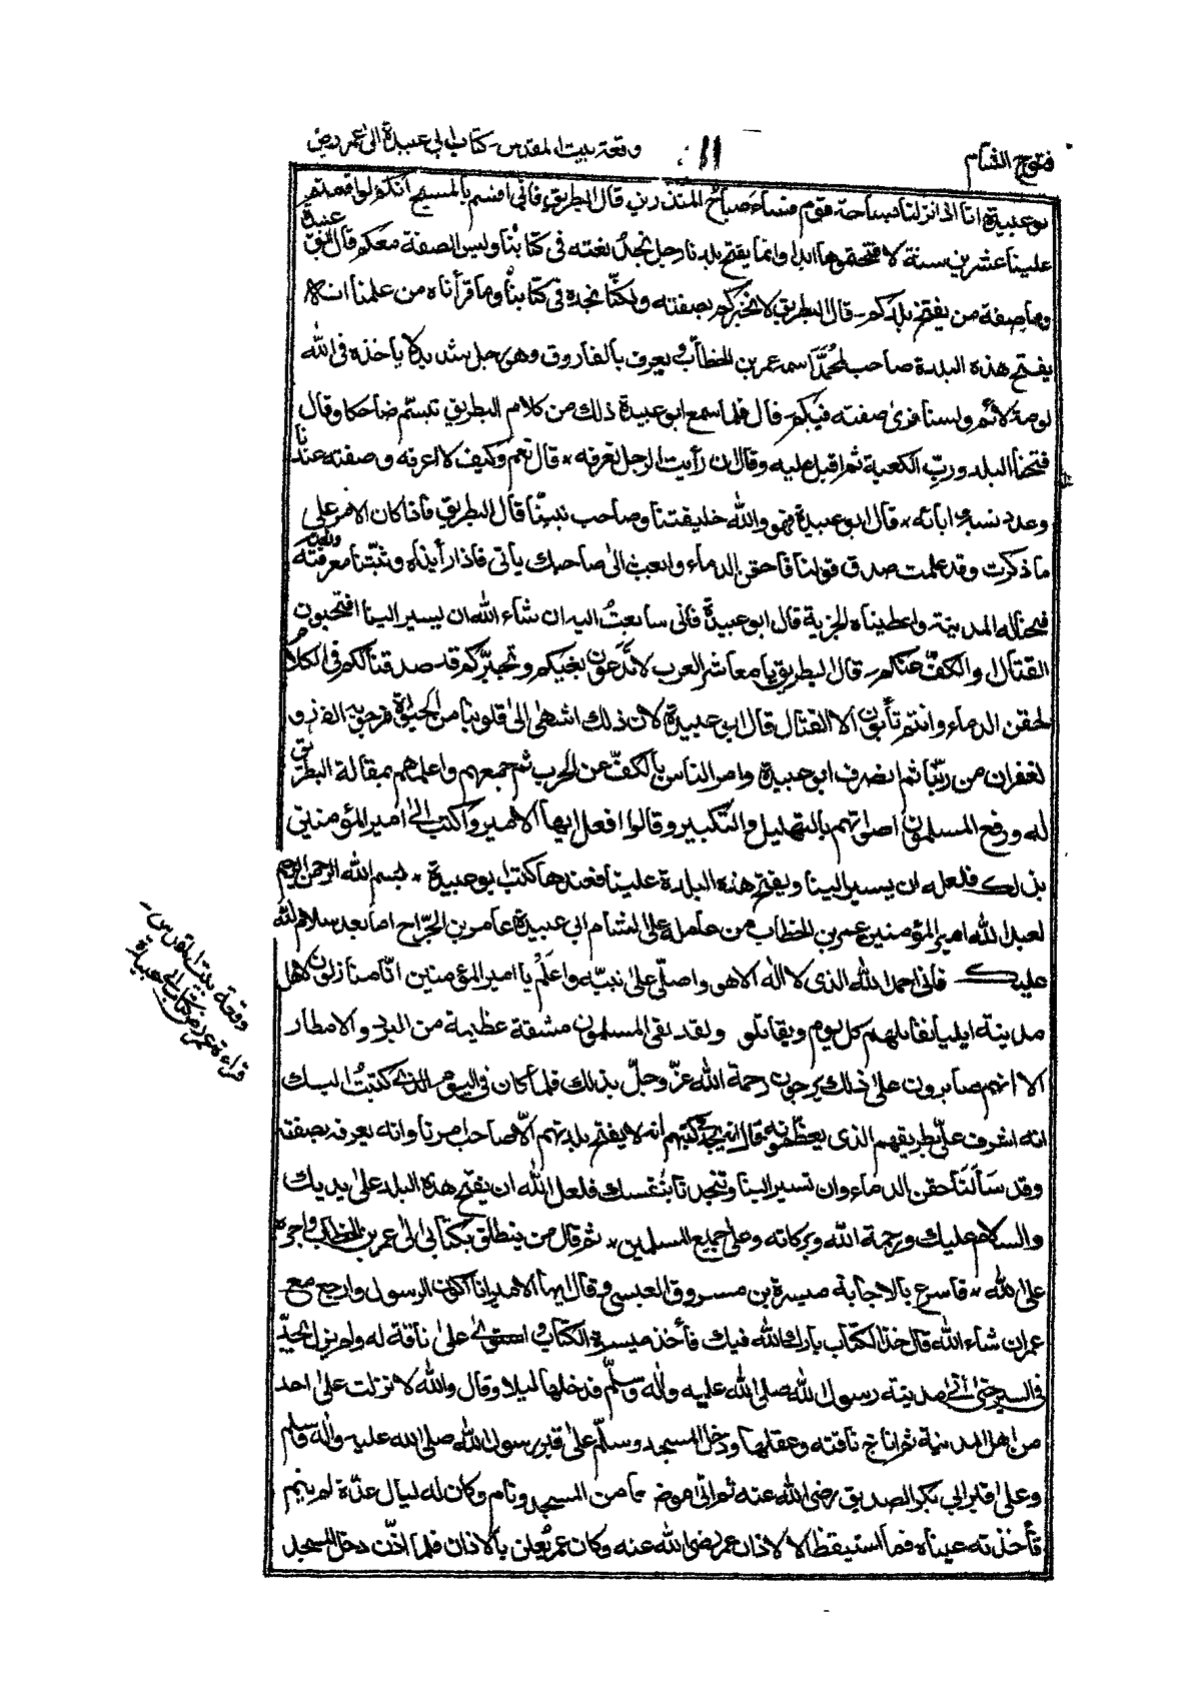 فتوح الشام
۱۱
وقعة بيت المقدس - كتاب ابي عبيدة الى عمر رض
بوعبيدة انا اذا نزلنا بساحة قوم فساء صباح المنذرين قال البطريق فاني اقسم بالمسيح انكم لو اقمتم
علينا عشرين سنة لا فتحتموها ابدا وانما يفتح بلدنا رجل نجد نعته في كتابنا وليس الصفة معكم قال ابوعبيدة
وما صفة من يفتح بلدكم - قال البطريق لا نخبركم بصفته ولكنا نجده في كتابنا وما قرأناه من علمنا انه لا
يفتح هذه البلدة صاحب لمحمد اسمه عمر بن الخطاب يعرف بالفاروق وهو رجل شديد لا ياخذه في الله
لومة لائم ولسنا نرى صفته فيكم - قال فلما سمع ابوعبيدة ذلك من كلام البطريق تبسم ضاحكا وقال
فتحنا البلد ورب الكعبة ثم اقبل عليه وقال ان رأيت الرجل تعرفه * قال نعم وكيف لا اعرفه وصفته عندنا
وعدد نسبه ابائه * قال ابوعبيدة فهو والله خليفتنا وصاحب نبينا قال البطريق فاذا كان الامر على
ما ذكرت وقد علمت صدق قولنا فاحقن الدماء وابعث الى صاحبك ياتي فاذا رأيناه وثبتنا معرفته
فتحنا له المدينة واعطيناه الجزية قال ابوعبيدة فاني سابعث اليه ان شاء الله ان يسير الينا افتحبون
القتال والكف عنكم - قال البطريق يا معاشر العرب لا تدعون بغيكم ونخبركم قد صدقناكم في الكلام
لحقن الدماء وانتم تأبون الا القتال قال ابوعبيدة لان ذلك اشهى الى قلوبنا من الحياة نرجو به الفوز و
لغفران من ربنا ثم انصرف ابوعبيدة وامر الناس بالكف عن الحرب ثم جمعهم واعلمهم بمقالة البطريق
له ورفع المسلمون اصواتهم بالتهليل والتكبير وقالوا افعل ايها الامير واكتب الى امير المؤمنين
بذلك فلعله ان يسير الينا ويفتح هذه البلدة علينا فعندها كتب ابوعبيدة * بسم الله الرحمن الرحيم
لعبد الله امير المؤمنين عمر بن الخطاب من عامله على الشام ابي عبيدة عامر بن الجراح اما بعد سلام الله
عليك فاني احمد الله الذي لا اله الا هو واصلي على نبيه واعلم يا امير المؤمنين انا منازلون لاهل
مدينة ايليا نقاتلهم كل يوم ويقاتلو ولقد لقي المسلمون مشقة عظيمة من البرد والامطار
الا انهم صابرون على ذلك يرجون رحمة الله عز وجل بذلك فلما كان في اليوم الذي كتبت اليك
انه اشرف علي بطريقهم الذي يعظمونه قال انه يجد في كتبهم انه لا يفتح بلدتهم الا صاحب امرنا وانه يعرفه بصفته
وقد سألنا حقن الدماء وان تسير الينا وتنجدنا بنفسك فلعل الله ان يفتح هذه البلد على يديك
والسلام عليك ورحمة الله وبركاته وعلى جميع المسلمين * ثم قال من ينطلق بكتابي الى عمر بن الخطاب واجره
على الله * فاسرع بالاجابة ميسرة بن مسروق العبسي وقال ايها الامير انا اكون الرسول وارجع مع
عمر ان شاء الله قال خذ الكتاب بارك الله فيك فأخذ ميسرة الكتاب واستوى على ناقة له ولم يزل يجد
في السير حتى اتى مدينة رسول الله صلى الله عليه واله وسلم فدخلها ليلا وقال والله لا نزلت على احد
من اهل المدينة ثم اناخ ناقته وعقلها ودخل المسجد وسلم على قبر رسول الله صلى الله عليه واله وسلم
وعلى قبر ابي بكر الصديق رضي الله عنه ثم اتى موضعا من المسجد ونام وكان له ليال عدة لم ينم
فأخذته عيناه فما استيقظ الا لاذان عمر رضي الله عنه وكان عمر يعلن بالاذان فلما اذن دخل المسجد
وقعة بيت المقدس -
قراءة عمر رض كتاب ابي عبيدة